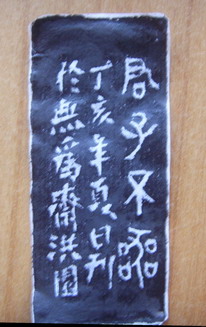 君子不器
丁亥年夏日刊
於無爲齋洪園